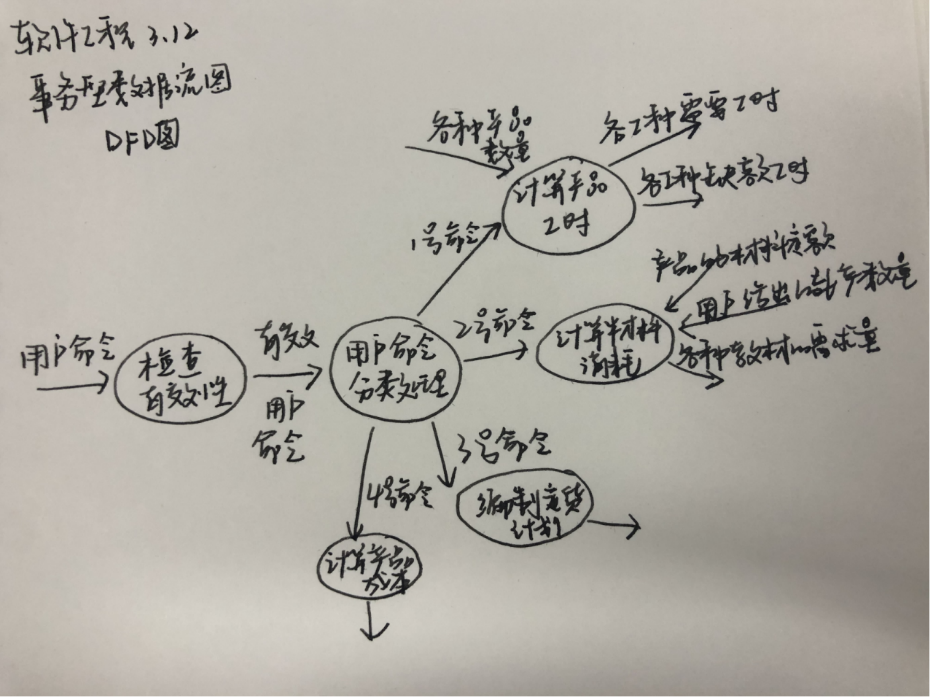 软件工程 3.12
事务型数据流图
DFD图
各种产品
数量
各工种需要工时
计算产品
工时
各工种缺额工时
1号命令
产品的材料定额
用户给出计产数量
2号命令
计算材料
消耗
各种材料需求量
用户命令
检查
有效性
有效
用户
命令
用户命令
分类处理
3号命令
4号命令
编制定货
计划
计算产品
成本